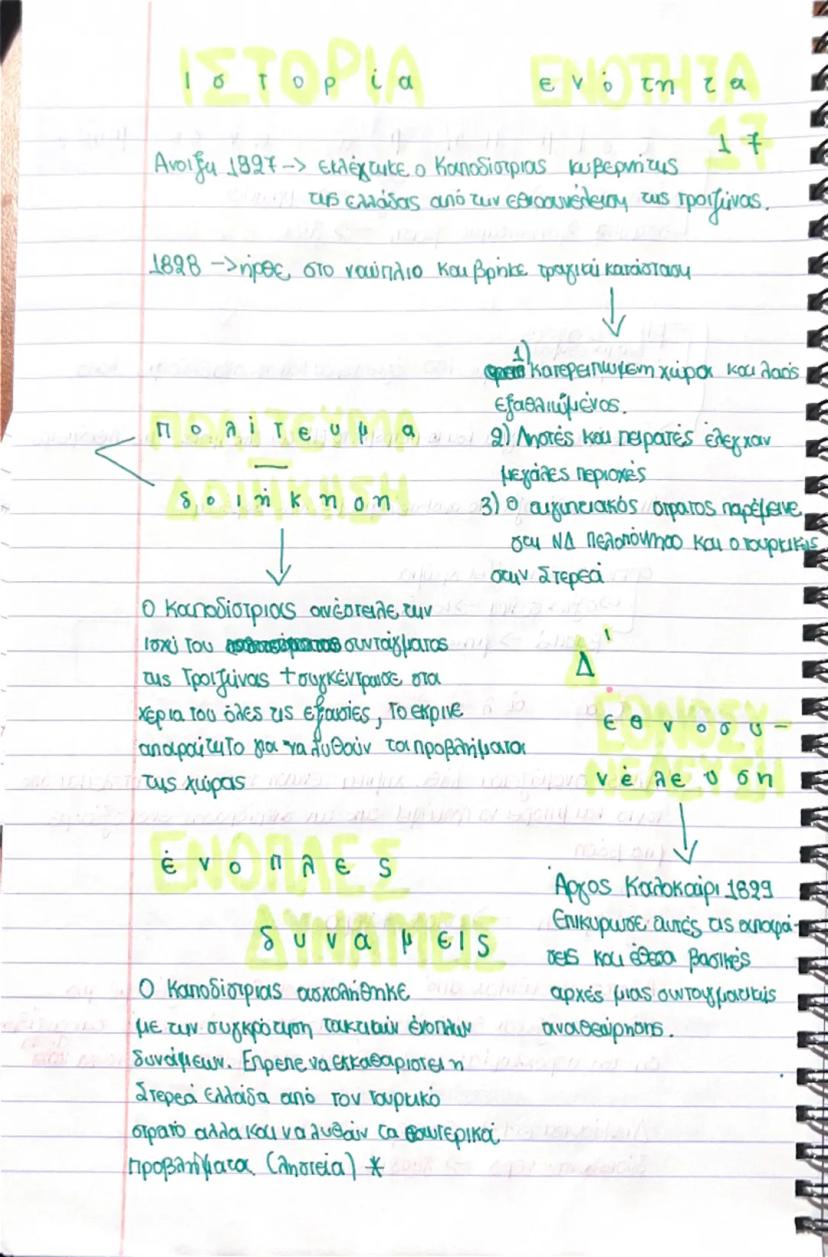 Ιστορία ενότητα
17
Ανοιξη 1827 -> εκλέχτηκε ο Καποδίστριας κυβερνήτης
της ελλάδας από την εθνοσυνέλευση της τροιζήνας.
1828 -> ήρθε στο ναύπλιο και βρήκε τραγική κατάσταση
1) κατερειπωμένη χώρα και λαός
εξαθλιωμένος.
2) Ληστές και πειρατές έλεγχαν
μεγάλες περιοχές
3) Ο αιγυπτιακός στρατος παρέμεινε
στη ΝΔ Πελοπόννησο και ο τουρκικός
στην Στερεά
πολίτευμα
–
δοιήκηση
Ο Καποδίστριας ανέστειλε την
ισχύ του συντάγματος
της Τροιζήνας + συγκέντρωσε στα
χέρια του όλες τις εξουσίες, το έκρινε
απαραίτητο για να λυθούν τα προβλήματα
της χώρας
Δ'
εθνοσυ-
νέλευση
Άργος Καλοκαίρι 1829
Επικύρωσε αυτές τις αποφά-
σεις και έθεσε βασικές
αρχές μιας συνταγματικής
αναθεώρησης.
ένοπλες
δυναμεις
Ο Καποδίστριας ασχολήθηκε
με την συγκρότηση τακτικών ένοπλων
δυνάμεων. Επρεπε να εκκαθαριστει η
Στερεά ελλάδα από τον τουρκικό
στρατό αλλα και να λυθούν τα εσωτερικά
προβλήματα (ληστεία) *